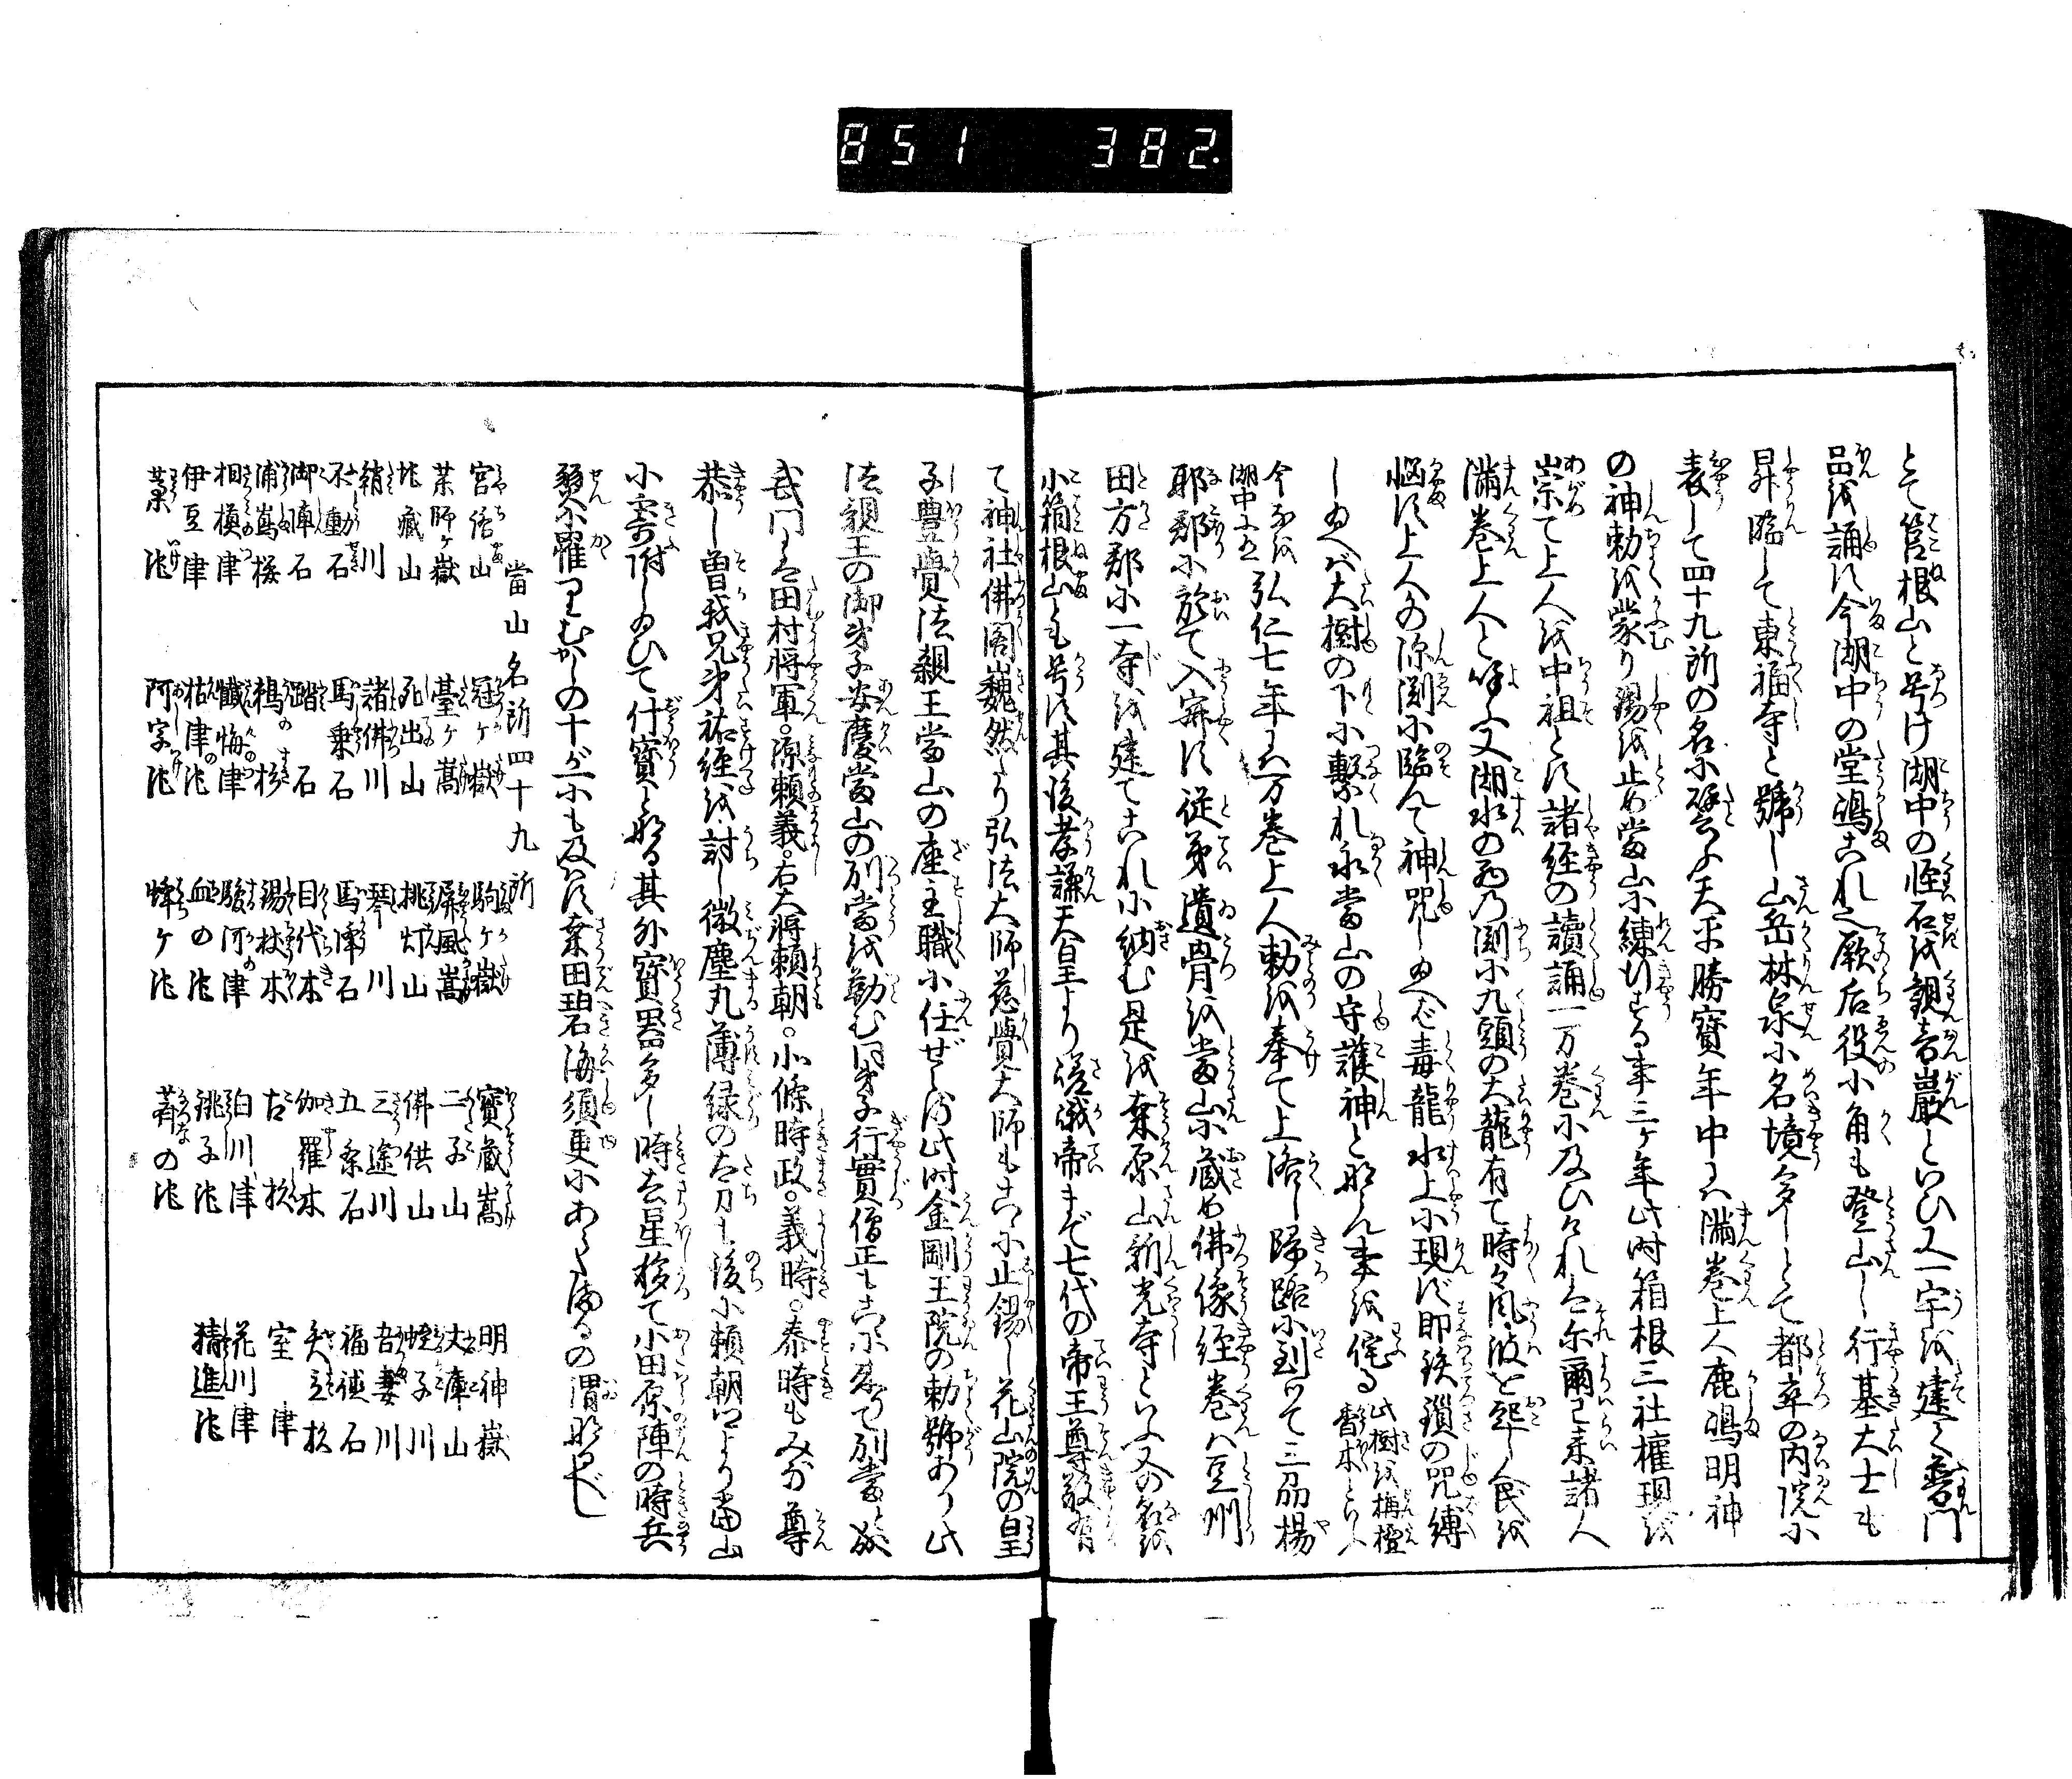 851 382.
とて筥根山と号け湖中の恠石を観音巌といひ又一宇を建て普門
品を誦す今湖中の堂嶋これ也厥后役小角も登山し行基大士も
昇臨して東福寺と號し山岳林泉に名境多しとて都卒の内院に
表して四十九所の名に譬ふ天平勝寶年中には満巻上人鹿嶋明神
の神勅を蒙り錫を止め當山に練行する事三ケ年此時箱根三社権現を
崇て上人を中祖とす諸経の讀誦一万巻に及ひけれは尓爾已来諸人
満巻上人と呼ふ又湖水の西乃渕に九頭の大龍有て時々風波を起し人民を
悩す上人かの深渕に臨んて神咒し給へば毒龍水上に現ず即鉄鎖の咒縛
し給へば大樹の下に繋れ永當山の守護神と成ん事を侘る此樹を栴檀香木といふ
今なを湖中にあり弘仁七年には万巻上人勅を奉て上洛し歸路に到りて三刕楊
耶郡に於て入寂す従弟遺骨を當山に蔵め佛像経巻は豆州
田方郡に一寺を建てこれに納む是を桒原山新光寺といふ又の名を
小箱根山とも号す其後孝謙天皇より嵯峨帝まで七代の帝王尊敬有
て神社佛閣巍然たり弘法大師慈覺大師もこゝに止錫し花山院の皇
子豊覺法親王當山の座主職に任ぜらる此時金剛王院の勅號あり此
法親王の御弟子安慶當山の別當を勤む同弟子行實僧正もこゝに居て別當と成
武門には田村将軍。源頼義。右大将頼朝。北條時政。義時。泰時もみな尊
恭し曽我兄弟祐経を討し微塵丸薄緑の太刀も後に頼朝公より當山
に寄附し給ひて什寶と成る其外寶器多し時去星移て小田原陣の時兵
燹に罹りむかしの十が一にも及はす桒田碧海須更にあらたまるの謂成べし
當山名所四十九所
宮倍山 冠ケ嶽 駒ケ嶽 寶蔵嵩 明神嶽
薬師ケ嶽 臺ケ嵩 屏風嵩 二子山 文庫山
地蔵山 死出山 挑灯山 佛供山 蛭子川
綃川 諸佛川 琴川 三途川 吾妻川
不動石 馬乗石 馬淳石 五条石 福徳石
御陣石 踏石 目代木 伽羅木 矢立杉
浦嶌桜 楊の杉 錫杖木 古杉 室津
相模津 懺悔津 駿河津 泊川津 花川津
伊豆津 枯津池 血の池 銚子池 精進池
菓池 阿字池 蜂ケ池 菁の池